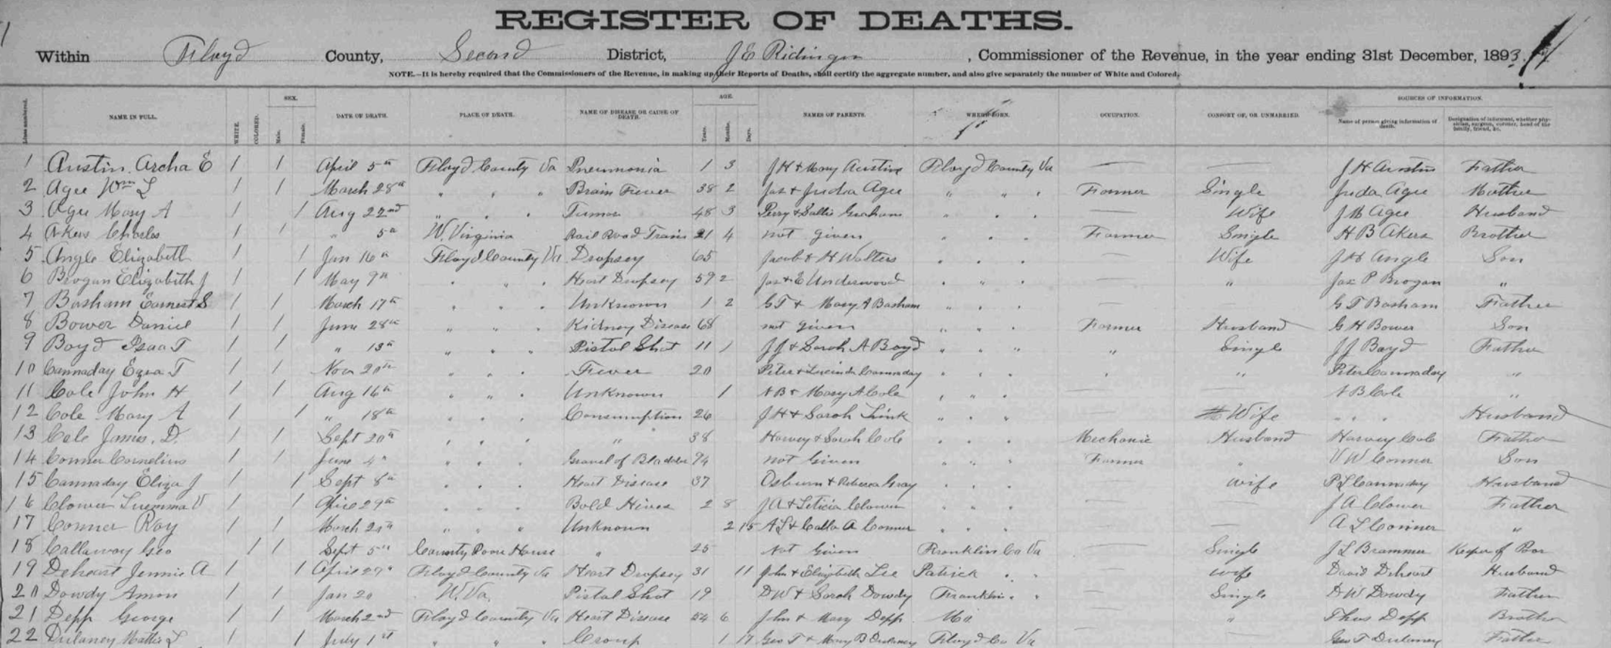 REGISTER OF DEATHS.
Within Floyd County, Second District, J E Ridinger, Commissioner of the Revenue, in the year ending 31st December, 1893.
NOTE.—It is hereby required that the Commissioners of the Revenue, in making up their Reports of Deaths, shall certify the aggregate number, and also give separately the number of White and Colored.
SEX. AGE. SOURCES OF INFORMATION.
NAME IN FULL. WHITE. COLORED. Male. Female. DATE OF DEATH. PLACE OF DEATH. NAME OF DISEASE OR CAUSE OF DEATH. Years. Months. Days. NAMES OF PARENTS. WHERE BORN. OCCUPATION. CONSORT OF, OR UNMARRIED. Name of person giving information of death.
1 Austin Archa E 1 1 April 5th Floyd County Va Pneumonia 1 3 J H & Mary Austin Floyd County Va — — J H Austin Father
2 Agee Wm L 1 1 March 28th " " " Brain Fever 38 2 Jas & Juda Agee " " " Farmer Single Juda Agee Mother
3 Agee Mary A 1 1 Aug 22nd " " " Tumor 45 3 Perry & Sallie Graham " " " — Wife J B Agee Husband
4 Akers Charles 1 1 " 5th W. Virginia Rail Road Train 21 4 not given " " " Farmer Single H B Akers Brother
5 Angle Elizabeth 1 1 Jan 16th Floyd County Va Dropsey 65 Jacob & H Walters " " " — Wife Angle Son
6 Brogan Elizabeth J 1 1 May 9th " " " Heart Dropsey 59 2 Jas & E Underwood " " " — " Jas P Brogan "
7 Basham Earnest S 1 1 March 17th " " " Unknown 1 2 G T & Mary A Basham " " " — — G T Basham Father
8 Bower Daniel 1 1 June 28th " " " Kidney Disease 68 not given " " " Farmer Husband C H Bower Son
9 Boyd Isaac T 1 1 " 13th " " " Pistol Shot 11 1 J J & Sarah A Boyd " " " " Single J J Boyd Father
10 Cannaday Ezra T 1 1 Nov 20th " " " Fever 20 Peter & Lucinda Cannaday " " " " " Peter Cannaday "
11 Cole John H 1 1 Aug 16th " " " Unknown 1 A B & Mary A Cole " " " — — A B Cole "
12 Cole Mary A 1 1 " 18th " " " Consumption 26 J H & Sarah Link " " " — Wife " " " Husband
13 Cole James D. 1 1 Sept 20th " " " " 38 Harvey & Sarah Cole " " " Mechanic Husband Harvey Cole Father
14 Conner Cornelius 1 1 June 4th " " " Gravel of Bladder 74 not Given " " " Farmer " V W Conner Son
15 Cannaday Eliza J 1 1 Sept 8th " " " Heart Disease 37 Osburn & Rebecca Gray " " " — Wife Cannaday Husband
16 Clower 1 1 29th " " " Bold Hives 2 8 J A & Leticia Clower " " " — — J A Clower Father
17 Conner Roy 1 1 March " " " Unknown 2 15 A L & Calla A Conner " " " — — A L Conner "
18 Callaway Geo 1 1 Sept 5th County Poor House " 25 Not Given Franklin Co Va — Single J L Brammer Keeper of Poor
19 Dehart Jennie A 1 1 April 29th Floyd County Va Heart Dropsey 31 11 John & Elizabeth Lee Patrick " " — Wife David Dehart Husband
20 Dowdy Amon 1 1 Jan 20 W. Va. Pistol Shot 19 D W & Sarah Dowdy Franklin " " — Single D W Dowdy Father
21 Depp George 1 1 March 2nd Floyd County Va Heart Disease 54 6 John & Mary Depp — " Thos Depp Brother
22 Dulaney L 1 1 July 1st " " " Croup 1 17 Geo T & Mary B Dulaney Floyd Co Va — — Geo T Dulaney Father